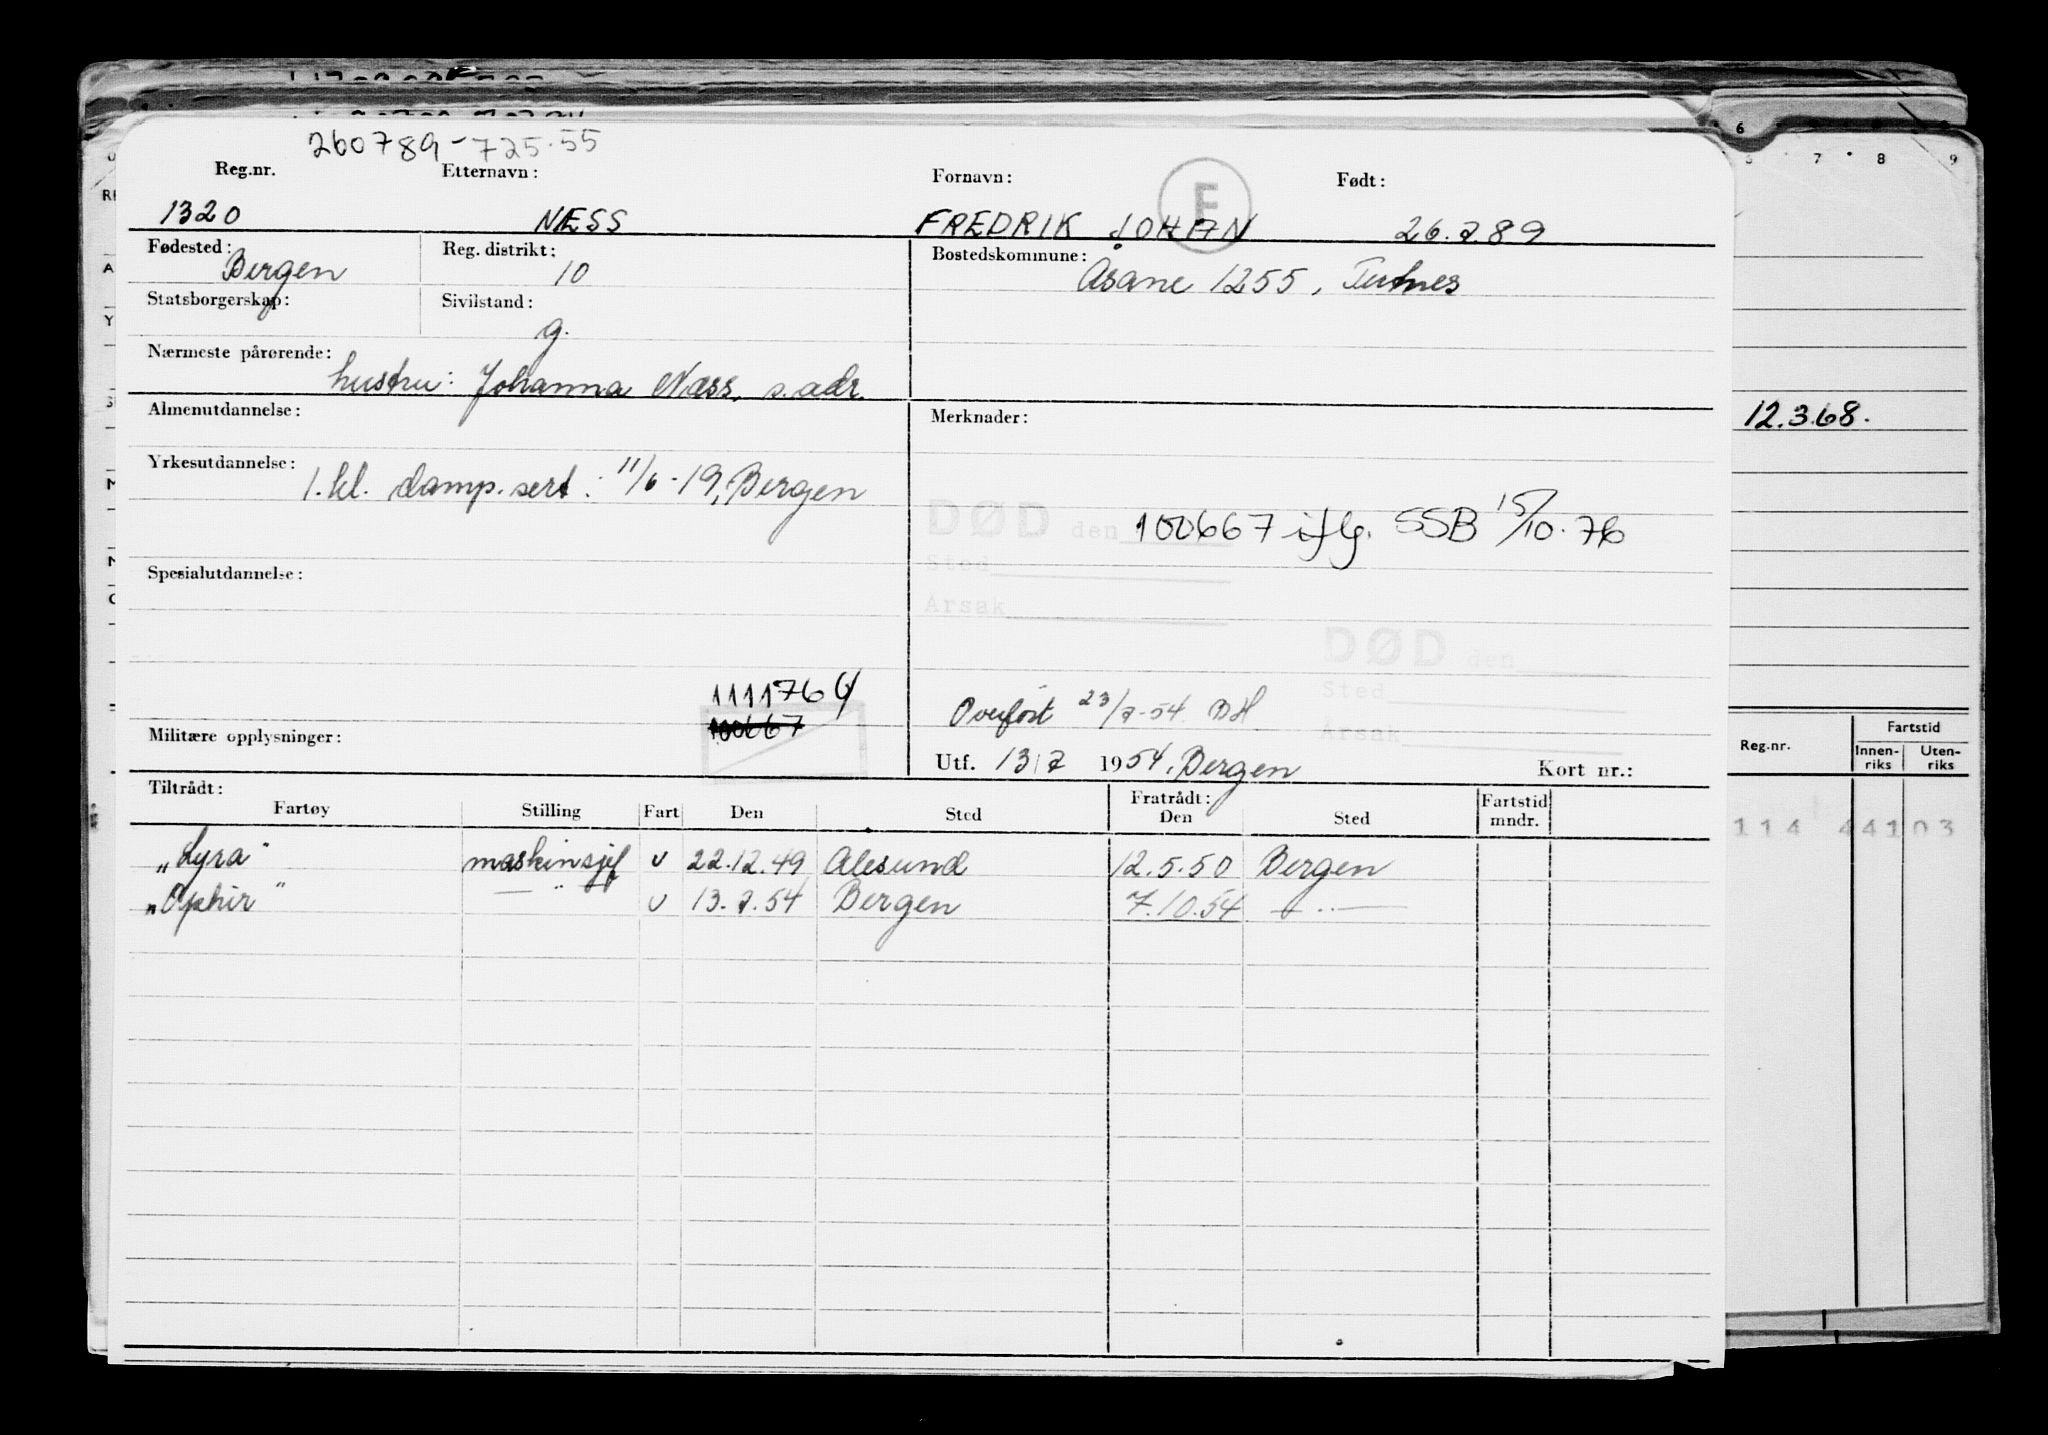 260789-725.55
Reg.nr. Etternavn: Fornavn: F Født:
1320 NÆSS FREDRIK JOHAN 26.7.89
Fødested: Bergen Reg. distrikt: 10 Bostedskommune: Åsane 1255,
Statsborgerskap: Sivilstand: g.
Nærmeste pårørende: hustru: Johanna Næss, s. adr.
Almenutdannelse: Merknader:
Yrkesutdannelse: 1. kl. damp. sert: 11/6-19, Bergen
DØD den 100667 iflg. SSB 15/10.76
Sted
Årsak
Spesialutdannelse:
DØD den
Sted
Årsak
111176
100667
Overført 23/7-54
Militære opplysninger:
Utf. 13/7 1954, Bergen Kort nr.:
Tiltrådt: Fratrådt:
Fartøy Stilling Fart Den Sted Den Sted Fartstid mndr.
"Lyra" maskinsjef u 22.12.49 Ålesund 12.5.50 Bergen
"Ophir" — " — u 13.7.54 Bergen 7.10.54 — " —
6
7 8 9
12.3.68.
Reg.nr. Fartstid
Innen-riks Uten-riks
114 44103